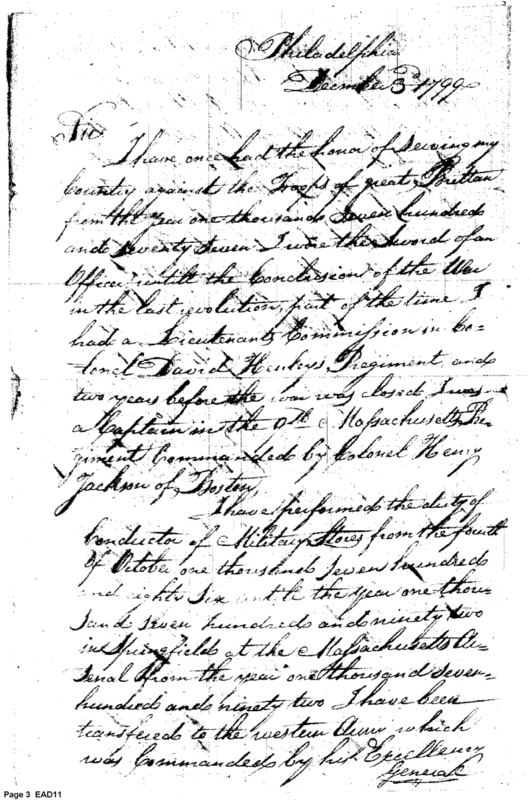 Philadelphia
December 3d 1799
Sir
I have once had the honor of Serving my
Country against the Troops of great Brittan
from the year one thousand Seven hundred
and Seventy Seven I wore the Sword of an
Officer untill the Conclusion of the War
in the last revolution, part of the time I
had a Lieutenants Commission in Co-
lonel David Henleys Regiment, and
two years before the war was closed I was
a Captain in the Massachusetts Re-
giment Commanded by Colonel Henry
Jackson of Boston,
I have performed the duty of
Conductor of Military Stores from the fourth
of October one thousand Seven hundred
and eighty Six untle the year one thou-
sand Seven hundred and ninety two
in Springfield at the Massachusetts Ar-
senal from the year one thousand seven-
hundred and ninety two I have been
transfered to the western Army which
was Commanded by his Excellency
General
Page 3 EAD11